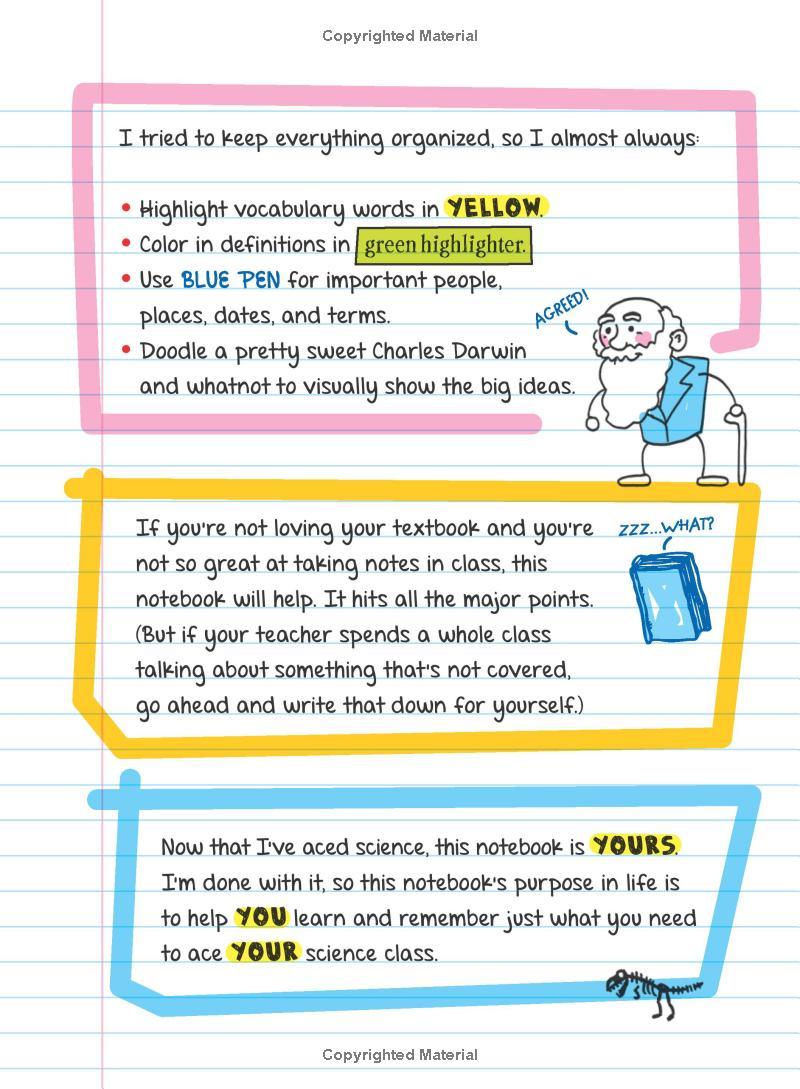 Copyrighted Material
I tried to keep everything organized, so I almost always:
• Highlight vocabulary words in YELLOW.
• Color in definitions in green highlighter.
• Use BLUE PEN for important people,
places, dates, and terms.
AGREED!
• Doodle a pretty sweet Charles Darwin
and whatnot to visually show the big ideas.
If you're not loving your textbook and you're
ZZZ...WHAT?
not so great at taking notes in class, this
notebook will help. It hits all the major points.
(But if your teacher spends a whole class
talking about something that's not covered,
go ahead and write that down for yourself.)
Now that I've aced science, this notebook is YOURS.
I'm done with it, so this notebook's purpose in life is
to help YOU learn and remember just what you need
to ace YOUR science class.
Copyrighted Material